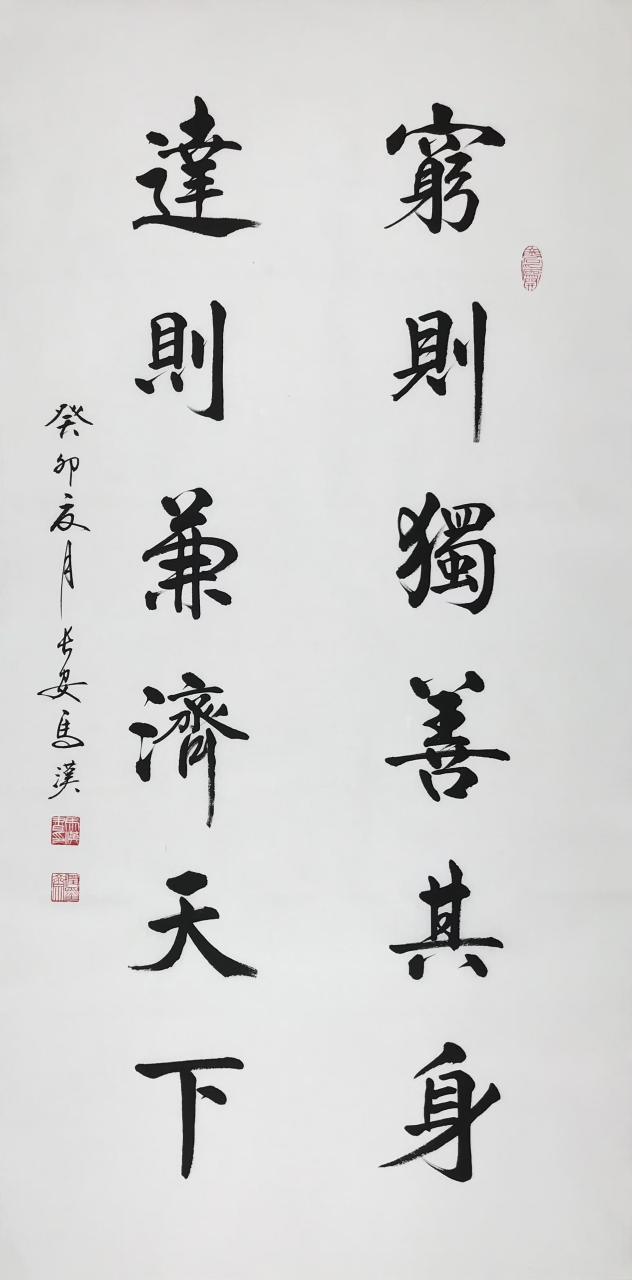 窮則獨善其身
達則兼濟天下
癸卯夏月長安馬漢